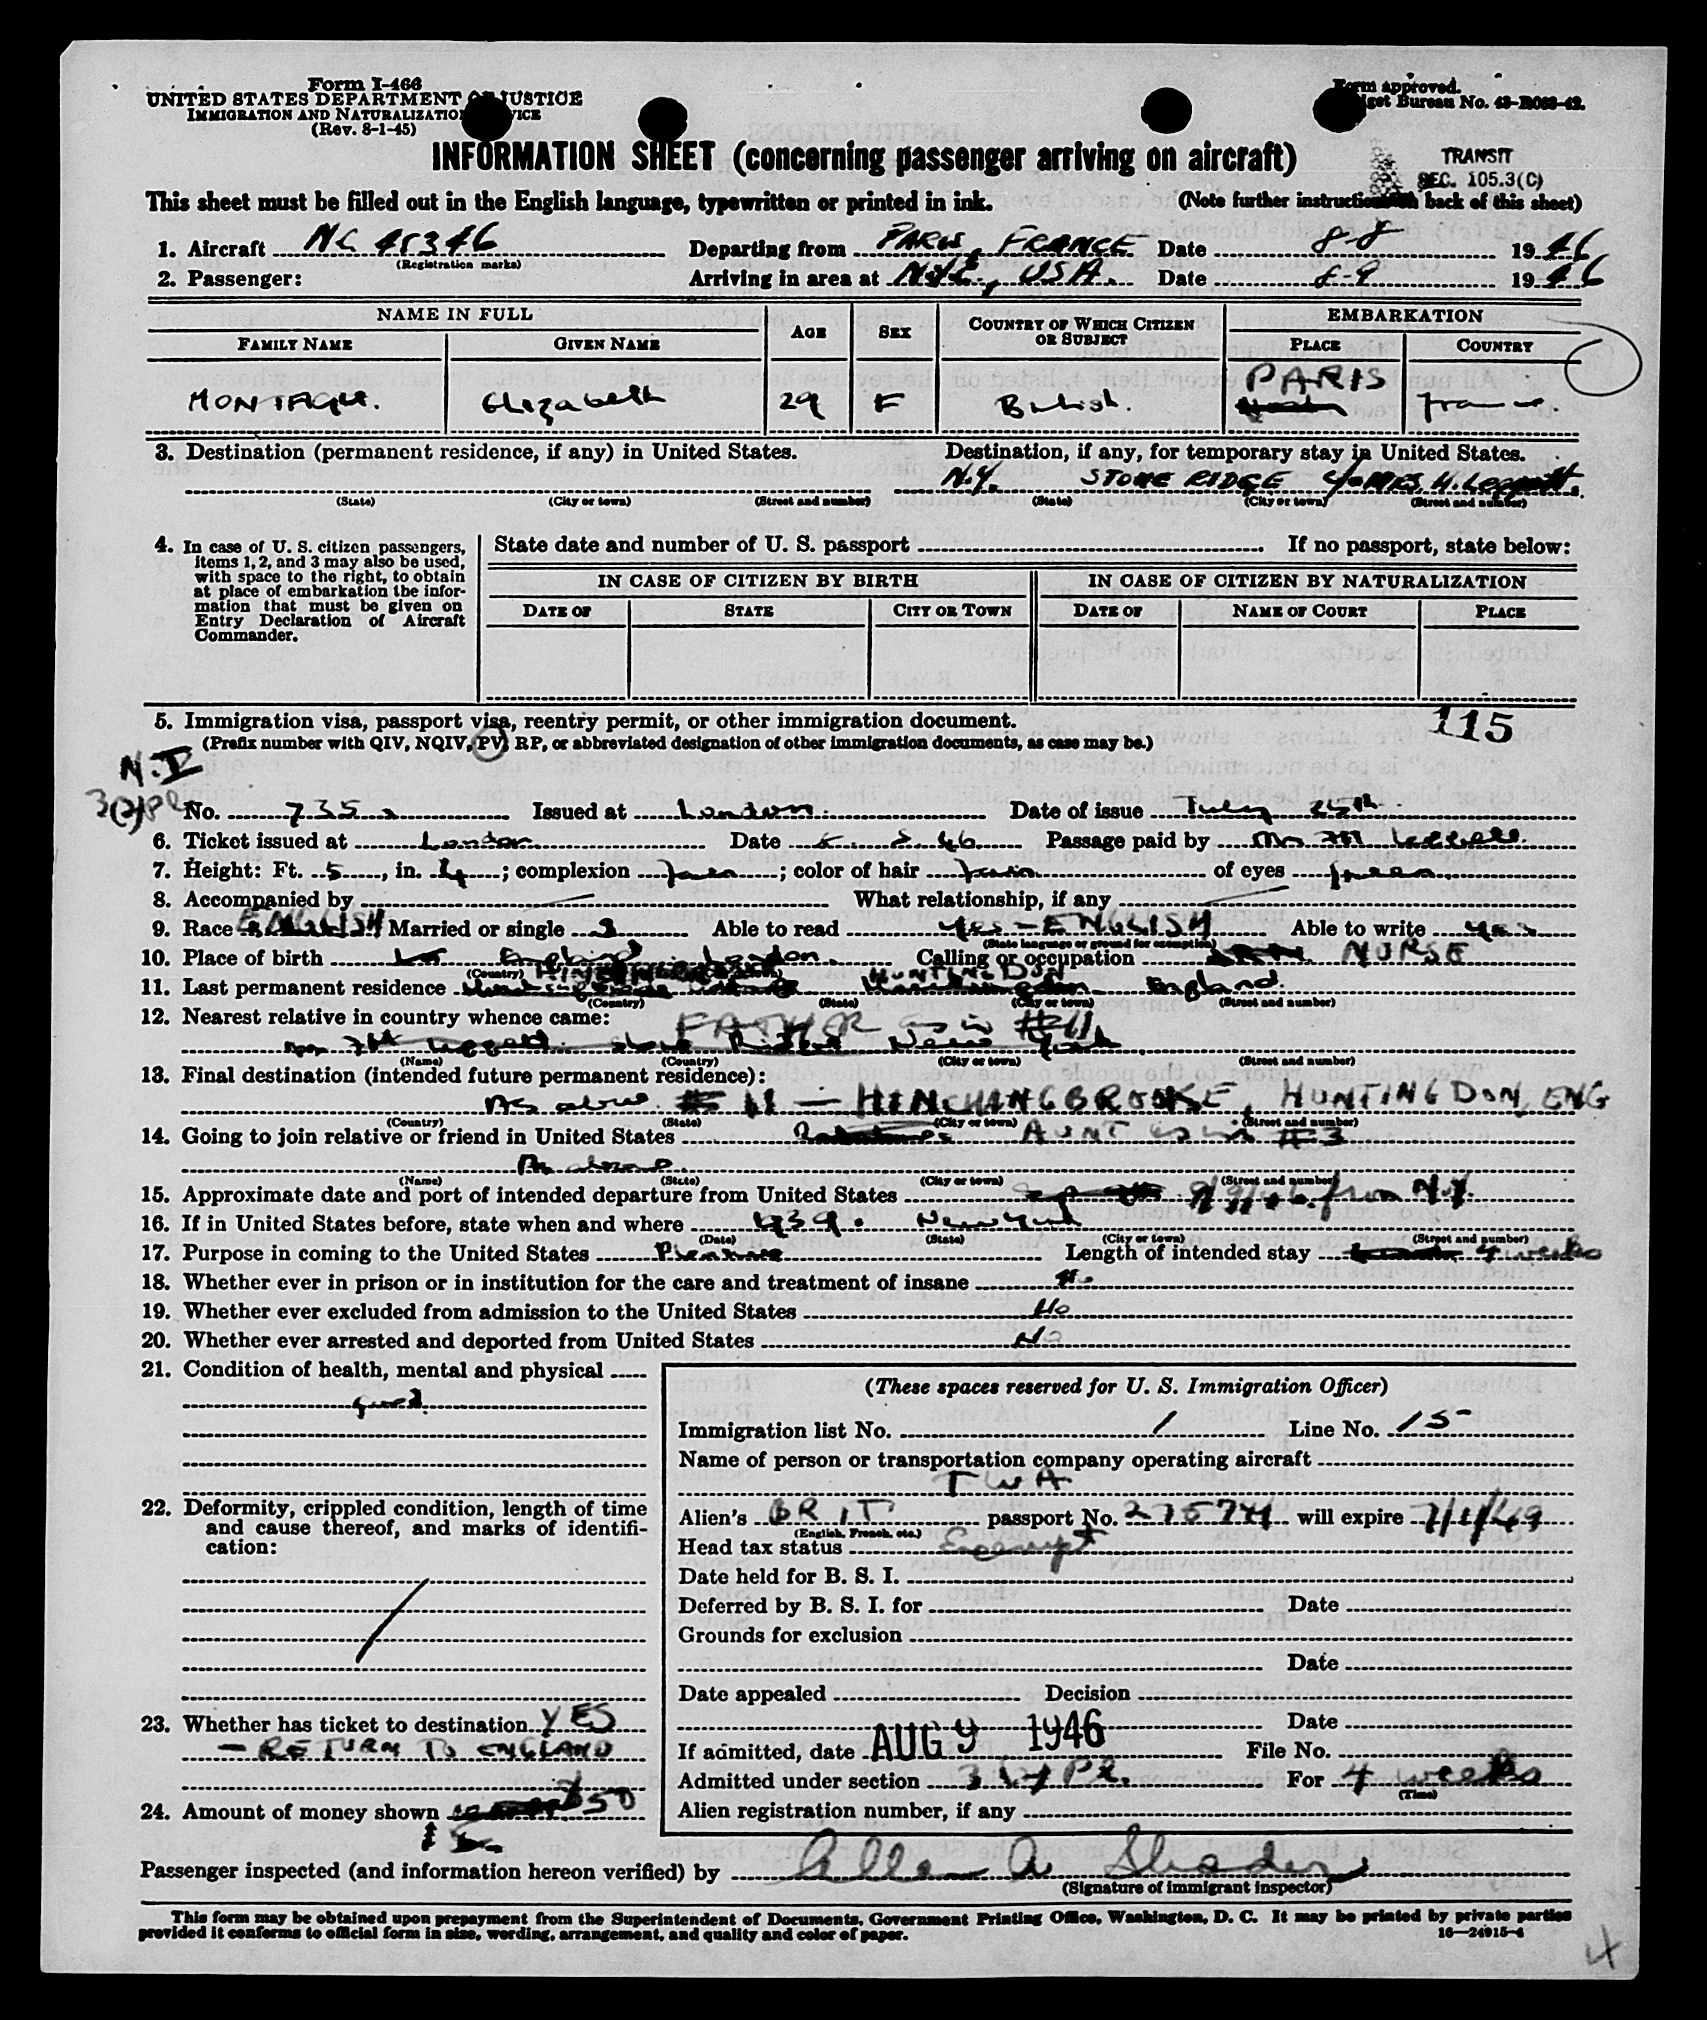 Form I-466
UNITED STATES DEPARTMENT OF JUSTICE
IMMIGRATION AND NATURALIZATION SERVICE
(Rev. 8-1-45)
Form approved.
Budget Bureau No. 43-R063-42.
INFORMATION SHEET (concerning passenger arriving on aircraft)
TRANSIT
SEC. 105.3(C)
This sheet must be filled out in the English language, typewritten or printed in ink. (Note further instructions on back of this sheet)
1. Aircraft NC 45346 Departing from PARIS, FRANCE Date 8-8 1946
(Registration marks)
2. Passenger: Arriving in area at N.Y.C., USA. Date 8-9 1946
NAME IN FULL AGE SEX COUNTRY OF WHICH CITIZEN OR SUBJECT EMBARKATION
FAMILY NAME GIVEN NAME PLACE COUNTRY
MONTAGU. Elizabeth 29 F British. PARIS France.
3. Destination (permanent residence, if any) in United States. Destination, if any, for temporary stay in United States.
N.Y. STONE RIDGE c/o MRS. H. Leggett
(State) (City or town) (Street and number) (State) (City or town) (Street and number)
4. In case of U. S. citizen passengers, items 1, 2, and 3 may also be used, with space to the right, to obtain at place of embarkation the information that must be given on Entry Declaration of Aircraft Commander.
State date and number of U. S. passport If no passport, state below:
IN CASE OF CITIZEN BY BIRTH IN CASE OF CITIZEN BY NATURALIZATION
DATE OF STATE CITY OR TOWN DATE OF NAME OF COURT PLACE
5. Immigration visa, passport visa, reentry permit, or other immigration document.
115
(Prefix number with QIV, NQIV, PV, RP, or abbreviated designation of other immigration documents, as case may be.)
N.I
3(2)PL
No. 7352 Issued at London. Date of issue July 25th.
6. Ticket issued at London Date 5. 8. 46 Passage paid by Mrs Leggett.
7. Height: Ft. 5, in. 4; complexion ; color of hair fair of eyes green
8. Accompanied by — What relationship, if any —
9. Race ENGLISH Married or single S Able to read yes - ENGLISH Able to write yes
(State language or ground for exemption)
10. Place of birth England London. Calling or occupation NURSE
(Country)
11. Last permanent residence HINCHINGBROOKE HUNTINGDON England.
(Country) (State) (City or town) (Street and number)
12. Nearest relative in country whence came: FATHER as in #11
Leggett. Stone Ridge New York
(Name) (Country) (City or town) (Street and number)
13. Final destination (intended future permanent residence):
As above. # 11 — HINCHANGBROOKE, HUNTINGDON, ENG
(Country) (State) (City or town) (Street and number)
14. Going to join relative or friend in United States AUNT as in #3
As above.
(Name) (State) (City or town) (Street and number)
15. Approximate date and port of intended departure from United States from N.Y.
16. If in United States before, state when and where 1939. New York
(Date) (State) (City or town) (Street and number)
17. Purpose in coming to the United States Pleasure Length of intended stay 4 weeks
18. Whether ever in prison or in institution for the care and treatment of insane No
19. Whether ever excluded from admission to the United States No
20. Whether ever arrested and deported from United States No
21. Condition of health, mental and physical
good.
22. Deformity, crippled condition, length of time and cause thereof, and marks of identification:
23. Whether has ticket to destination YES
— RETURN TO ENGLAND
24. Amount of money shown $50
(These spaces reserved for U. S. Immigration Officer)
Immigration list No. 1 Line No. 15
Name of person or transportation company operating aircraft
TWA
Alien's BRIT passport No. 275741 will expire 7/11/49
(English, French, etc.)
Head tax status Exempt
Date held for B. S. I.
Deferred by B. S. I. for Date
Grounds for exclusion
Date
Date appealed Decision
Date
If admitted, date AUG 9 1946 File No.
Admitted under section 3(2) PL. For 4 weeks
(Time)
Alien registration number, if any
Passenger inspected (and information hereon verified) by Allen A
(Signature of immigrant inspector)
This form may be obtained upon prepayment from the Superintendent of Documents, Government Printing Office, Washington, D. C. It may be printed by private parties
provided it conforms to official form in size, wording, arrangement, and quality and color of paper.
16—24915-4
4